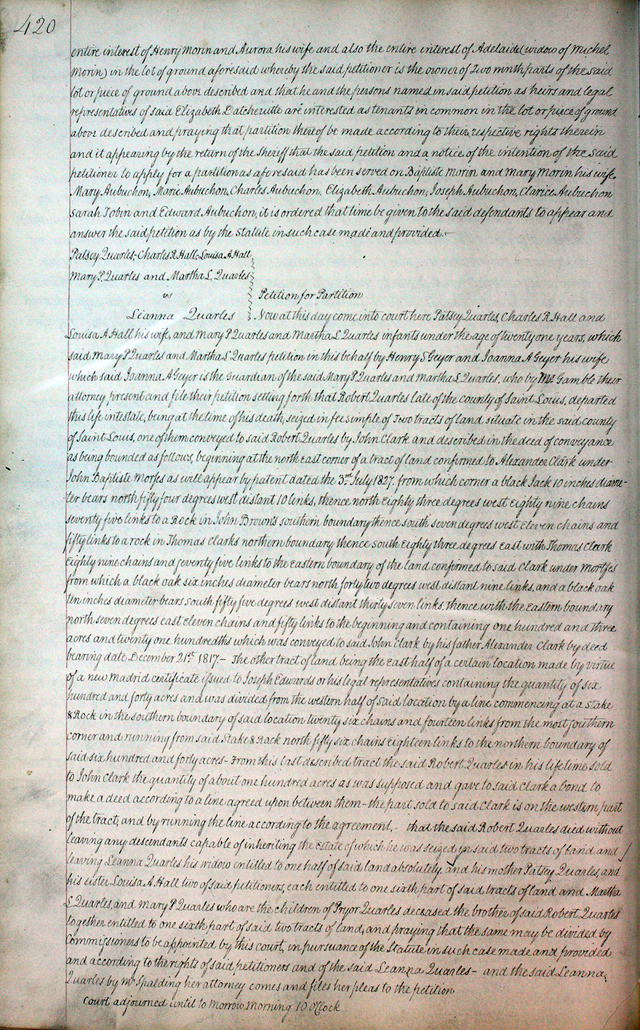 420
entire interest of Henry Morin and Aurora his wife and also the entire interest of Adelaide (widow of Michel
Morin) in the lot of ground aforesaid whereby the said petitioner is the owner of Two ninth parts of the said
lot or piece of ground above described and that he and the persons named in said petition as heirs and legal
representatives of said Elizabeth Datcherutte are interested as tenants in common in the lot or piece of ground
above described and praying that partition thereof be made according to their respective rights therein
and it appearing by the return of the Sheriff that the said petition and a notice of the intention of the said
petitioner to apply for a partition as aforesaid has been served on Baptiste Morin and Mary Morin his wife
Mary Aubuchon, Marie Aubuchon, Charles Aubuchon, Elizabeth Aubuchon, Joseph Aubuchon, Clarice Aubuchon
Sarah Tobin and Edward Aubuchon, it is ordered that time be given to the said defendants to appear and
answer the said petition as by the Statute in such case made and provided -
Patsey Quarles, Charles R. Hall, Louisa A Hall
Mary P. Quarles and Martha L Quarles
vs Petition for Partition
Leanna Quarles Now at this day come into court here Patsey Quarles, Charles R Hall and
Louisa A Hall his wife, and Mary P Quarles and Martha L Quarles infants under the age of twenty one years, which
said Mary P Quarles and Martha L Quarles petition in this behalf by Henry S Geyer and Joanna A Geyer his wife
which said Joanna A Geyer is the Guardian of the said Mary P Quarles and Martha L Quarles, who by Mr Gamble their
attorney present and file their petition setting forth that Robert Quarles late of the county of Saint Louis, departed
this life intestate, being at the time of his death, seized in fee simple of Two tracts of land situate in the said county
of Saint Louis, one of them conveyed to said Robert Quarles by John Clark and described in the deed of conveyance
as being bounded as follows, beginning at the north east corner of a tract of land confirmed to Alexander Clark under
John Baptiste Morfss as will appear by patent dated the 3rd July 1827, from which corner a black Jack 10 inches diame-
ter bears north fifty four degrees west distant 10 links, thence north Eighty three degrees west eighty nine chains
seventy five links to a Rock in John Brown's southern boundary thence south seven degrees west eleven chains and
fifty links to a rock in Thomas Clarks northern boundary thence south Eighty three degrees east with Thomas Clark
Eighty nine chains and seventy five links to the eastern boundary of the land confirmed to said Clark under Morfss
from which a black oak six inches diameter bears north forty two degrees west distant nine links, and a black oak
ten inches diameter bears south fifty five degrees west distant thirty seven links, thence with the Eastern boundary
north seven degrees east eleven chains and fifty links to the beginning and containing one hundred and three
acres and twenty one hundredths which was conveyed to said John Clark by his father Alexander Clark by deed
bearing date December 21st 1817 - The other tract of land being the east half of a certain location made by virtue
of a new Madrid certificate issued to Joseph Edwards or his legal representatives containing the quantity of six
hundred and forty acres and was divided from the western half of said location by a line commencing at a Stake
& Rock in the southern boundary of said location twenty six chains and fourteen links from the most southern
corner and running from said Stake & Rock north fifty six chains eighteen links to the northern boundary of
said six hundred and forty acres - From this last described tract the said Robert Quarles in his lifetime sold
to John Clark the quantity of about one hundred acres as was supposed and gave to said Clark a bond to
make a deed according to a line agreed upon between them - the part sold to said Clark is on the western part
of the tract, and by running the line according to the agreement, - that the said Robert Quarles died without
leaving any descendants capable of inheriting the Estate of which he was seized in said two tracts of land and
leaving Leanna Quarles his widow entitled to one half of said land absolutely and his mother Patsey Quarles, and
his sister Louisa A. Hall two of said petitioners, each entitled to one sixth part of said tracts of land and Martha
L Quarles, and Mary P. Quarles who are the children of Pryor Quarles deceased the brother of said Robert Quarles
together entitled to one sixth part of said two tracts of land, and praying that the same may be divided by
Commissioners to be appointed by this court, in pursuance of the Statute in such case made and provided
and according to the rights of said petitioners and of the said Leanna Quarles - and the said Leanna
Quarles by Mr Spalding her attorney comes and files her pleas to the petition
Court adjourned until to Morrow Morning 10 OClock